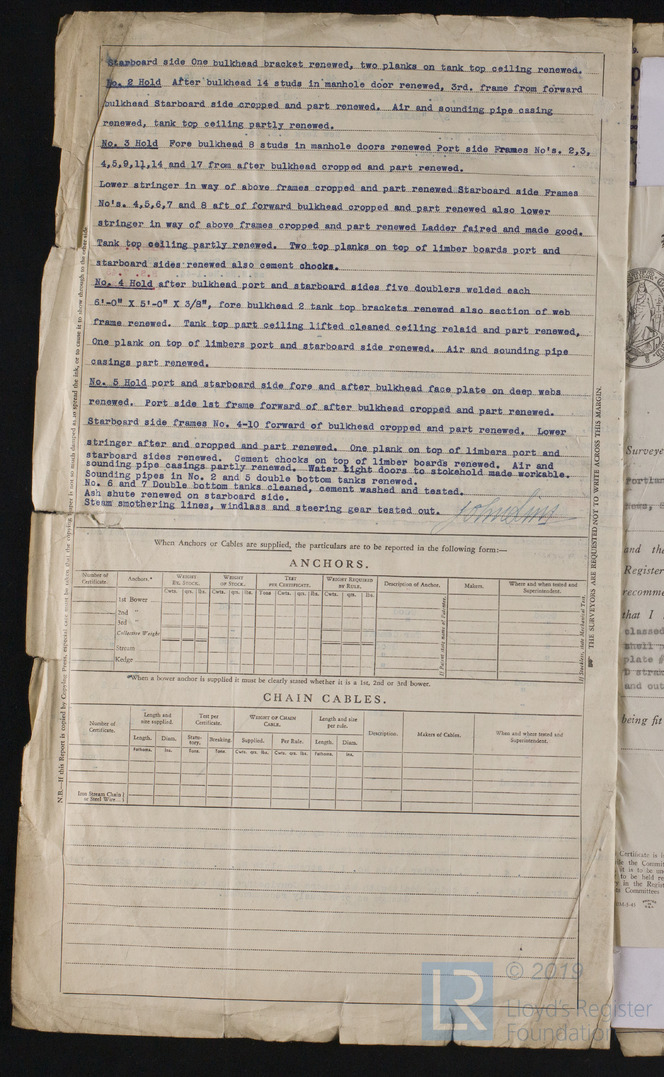 Starboard side One bulkhead bracket renewed, two planks on tank top ceiling renewed.
No. 2 Hold After bulkhead 14 studs in manhole door renewed, 3rd. frame from forward
bulkhead Starboard side cropped and part renewed. Air and sounding pipe casing
renewed, tank top ceiling partly renewed.
No. 3 Hold Fore bulkhead 8 studs in manhole doors renewed Port side Frames No's. 2,3,
4,5,9,11,14 and 17 from after bulkhead cropped and part renewed.
Lower stringer in way of above frames cropped and part renewed Starboard side Frames
No's. 4,5,6,7 and 8 aft of forward bulkhead cropped and part renewed also lower
stringer in way of above frames cropped and part renewed Ladder faired and made good.
Tank top ceiling partly renewed. Two top planks on top of limber boards port and
starboard sides renewed also cement chocks.
No. 4 Hold after bulkhead port and starboard sides five doublers welded each
6'-0" X 5'-0" X 3/8", fore bulkhead 2 tank top brackets renewed also section of web
frame renewed. Tank top part ceiling lifted cleaned ceiling relaid and part renewed,
One plank on top of limbers port and starboard side renewed. Air and sounding pipe
casings part renewed.
No. 5 Hold port and starboard side fore and after bulkhead face plate on deep webs
renewed. Port side 1st frame forward of after bulkhead cropped and part renewed.
Starboard side frames No. 4-10 forward of bulkhead cropped and part renewed. Lower
stringer after and cropped and part renewed. One plank on top of limbers port and
starboard sides renewed. Cement chocks on top of limber boards renewed. Air and
sounding pipe casings partly renewed. Water tight doors to stokehold made workable.
Sounding pipes in No. 2 and 5 double bottom tanks renewed.
No. 6 and 7 Double bottom tanks cleaned, cement washed and tested.
Ash shute renewed on starboard side.
Steam smothering lines, windlass and steering gear tested out.
When Anchors or Cables are supplied, the particulars are to be reported in the following form:—
ANCHORS.
Number of Certificate. Anchors.* Weight Ex. Stock. Weight of Stock. Test per Certificate. Weight Required by Rule. Description of Anchor. Makers. Where and when tested and Superintendent.
Cwts. qrs. lbs. Cwts. qrs. lbs. Tons Cwts. qrs. lbs. Cwts. qrs. lbs.
1st Bower
2nd "
3rd "
Collective Weight
Stream
Kedge
*When a bower anchor is supplied it must be clearly stated whether it is a 1st, 2nd or 3rd bower.
CHAIN CABLES.
Number of Certificate. Length and size supplied. Test per Certificate. Weight of Chain Cable. Length and size per rule. Description. Makers of Cables. When and where tested and Superintendent.
Length. Diam. Statutory. Breaking. Supplied. Per Rule. Length. Diam.
Fathoms. Ins. Tons. Tons. Cwts. qrs. lbs. Cwts. qrs. lbs. Fathoms. Ins.
Iron Stream Chain
or Steel Wire
THE SURVEYORS ARE REQUESTED NOT TO WRITE ACROSS THIS MARGIN.
N.B.—If this Report is copied by Copying Press,
Surveye
and th
Register
recomme
that I
classed
plate
and out
being fit
LR
© 2019
Lloyd's Register
Foundation